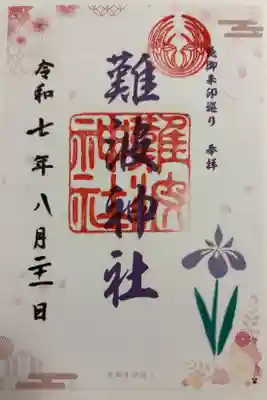 御朱印巡り 奉拝
難波神社
難波神社
令和七年八月二十一日